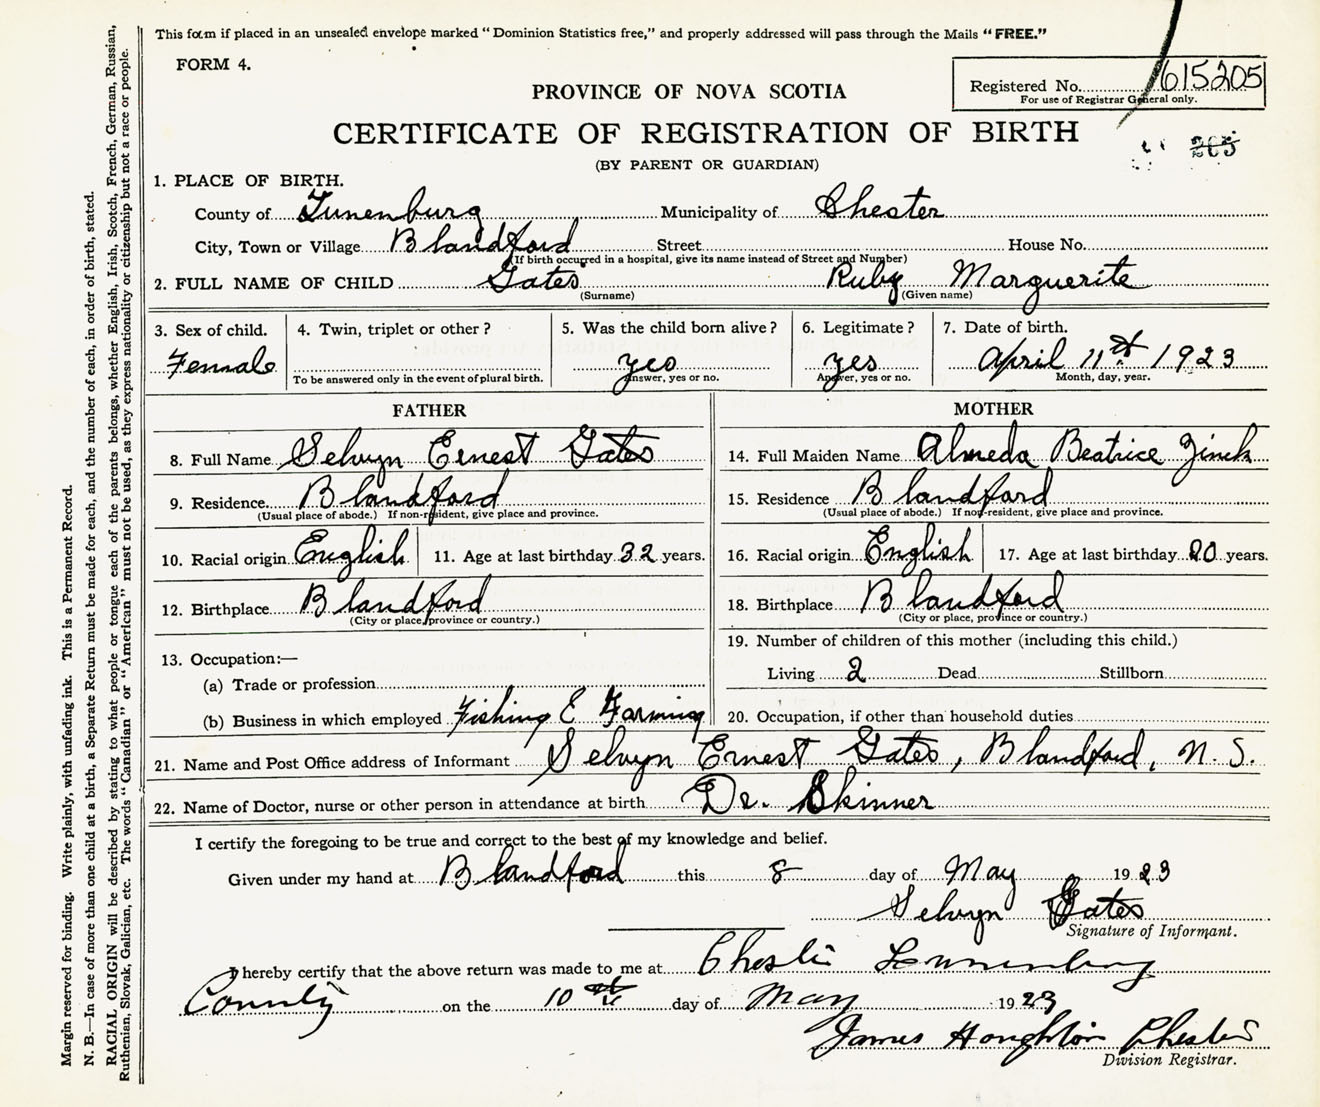 This form if placed in an unsealed envelope marked "Dominion Statistics free," and properly addressed will pass through the Mails "FREE."
FORM 4.
Registered No. 615205
For use of Registrar General only.
PROVINCE OF NOVA SCOTIA
CERTIFICATE OF REGISTRATION OF BIRTH
(BY PARENT OR GUARDIAN)
1. PLACE OF BIRTH.
County of Lunenburg Municipality of Chester
City, Town or Village Blandford Street House No.
(If birth occurred in a hospital, give its name instead of Street and Number)
2. FULL NAME OF CHILD Gates Ruby Marguerite
(Surname) (Given name)
3. Sex of child. 4. Twin, triplet or other? 5. Was the child born alive? 6. Legitimate? 7. Date of birth.
Female yes yes April 11th 1923
To be answered only in the event of plural birth. Answer, yes or no. Answer, yes or no. Month, day, year.
FATHER
8. Full Name Selvyn Ernest Gates
9. Residence Blandford
(Usual place of abode.) If non-resident, give place and province.
10. Racial origin English 11. Age at last birthday 32 years.
12. Birthplace Blandford
(City or place, province or country.)
13. Occupation:—
(a) Trade or profession
(b) Business in which employed Fishing & Farming
MOTHER
14. Full Maiden Name Almeda Beatrice Zinck
15. Residence Blandford
(Usual place of abode.) If non-resident, give place and province.
16. Racial origin English 17. Age at last birthday 20 years.
18. Birthplace Blandford
(City or place, province or country.)
19. Number of children of this mother (including this child.)
Living 2 Dead Stillborn
20. Occupation, if other than household duties
21. Name and Post Office address of Informant Selvyn Ernest Gates, Blandford, N.S.
22. Name of Doctor, nurse or other person in attendance at birth Dr. Skinner
I certify the foregoing to be true and correct to the best of my knowledge and belief.
Given under my hand at Blandford this 8 day of May 1923
Selvyn Gates
Signature of Informant.
I hereby certify that the above return was made to me at Chester Lunenburg
County on the 10th day of May 1923
James Houghton Chester
Division Registrar.
Margin reserved for binding. Write plainly, with unfading ink. This is a Permanent Record.
N. B.—In case of more than one child at a birth, a Separate Return must be made for each, and the number of each, in order of birth, stated.
RACIAL ORIGIN will be described by stating to what people or tongue each of the parents belongs, whether English, Irish, Scotch, French, German, Russian,
Ruthenian, Slovak, Galician, etc. The words "Canadian" or "American" must not be used, as they express nationality or citizenship but not a race or people.